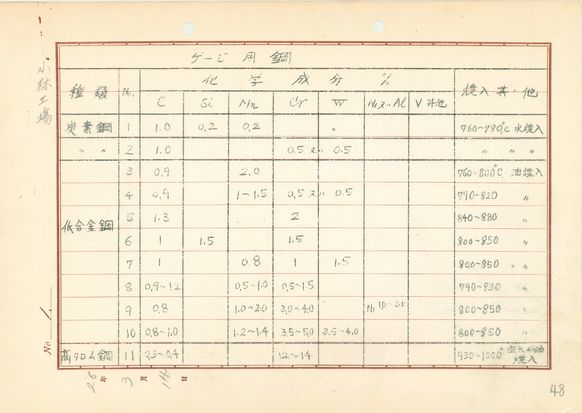 小林工場
ゲージ用鋼
種類 No. 化学成分 % 焼入其ノ他
C Si Mn Cr W Ni又ハAl V其他
炭素鋼 1 1.0 0.2 0.2 760~790℃ 水焼入
〃 〃 2 1.0 0.5 又ハ 0.5 〃 〃 〃
3 0.9 2.0 760~800℃ 油焼入
4 0.9 1~1.5 0.5 又ハ 0.5 790~820 〃
5 1.3 2 840~880 〃
低合金鋼
6 1 1.5 1.5 800~850 〃
7 1 0.8 1 1.5 800~850 〃
8 0.9~1.2 0.5~1.0 0.5~1.5 790~830 〃
9 0.8 1.0~2.0 3.0~4.0 Ni 1.0~2.0 800~850 〃
10 0.8~1.0 1.2~1.4 3.5~5.0 3.5~4.0 800~850 〃
高クロム鋼 11 12~14 930~1000 焼入
No. 1.
26年 3月 14日
48